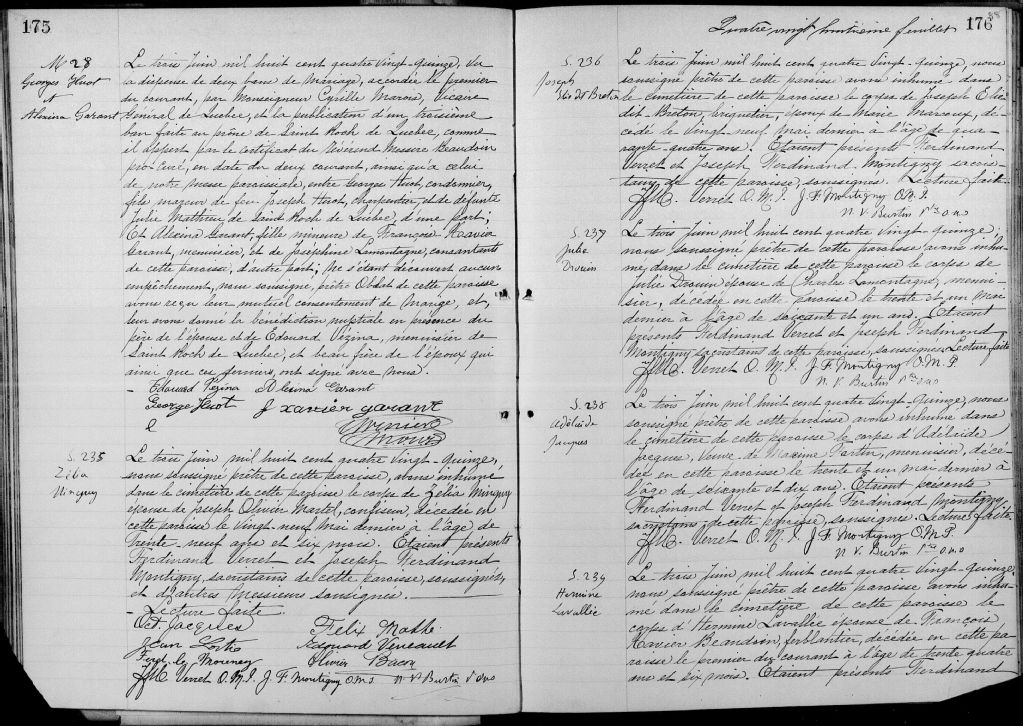 175
M 28
Georges Huot
et
Alexina Garant
Le trois Juin mil huit cent quatre vingt-quinze, vu
la dispense de deux bans de mariage, accordée le premier
du courant, par Monseigneur Cyrille Marois, Vicaire
Général de Québec, et la publication d'un troisième
ban faite au prône de Saint Roch de Québec, comme
il appert par le certificat du Révérend Messire Beaudoin
pro-Curé, en date du deux courant, ainsi qu'à celui
de notre messe paroissiale, entre Georges Huot, cordonnier,
fils majeur de feu Joseph Huot, charpentier, et de défunte
Julie Matthieu de Saint Roch de Québec, d'une part;
Et Alexina Garant, fille mineure de François Xavier
Garant, menuisier, et de Joséphine Lamontagne, consentants
de cette paroisse, d'autre part; Ne s'étant découvert aucun
empêchement, nous soussigné, prêtre Oblat de cette paroisse
avons reçu leur mutuel consentement de mariage, et
leur avons donné la bénédiction nuptiale en présence du
père de l'épouse et de Edouard Vézina, menuisier de
Saint Roch de Québec, et beau frère de l'époux qui
ainsi que ces femmes, ont signé avec nous.
- Edouard Vezina Alexina Garant
George Huot f xavier garant
S. 235
Zélia
Minguy
Le trois Juin, mil huit cent quatre Vingt-quinze,
nous soussigné prêtre de cette paroisse, avons inhumé
dans le cimetière de cette paroisse le corps de Zélia Minguy
épouse de Joseph Olivier Martel, confiseur, décédée en
cette paroisse le Vingt-neuf Mai dernier à l'âge de
trente-neuf ans et six mois. Etaient présents
Ferdinand Verret et Joseph Ferdinand
Montigny, sacristains de cette paroisse, soussignés,
et d'autres Messieurs soussignés.
- Lecture faite
Oct Jacques Felix Mathe
Jean Edouard Veneault
Ferd. Olivier Bacon
Verret O.M.I. J. F. Montigny O.M.I N. V. Burtin Ptre o.m.i
Quatre vingt huitième feuillet 176
88
S. 236
Joseph
Elie dit Breton
Le trois Juin mil huit cent quatre vingt-quinze, nous
soussigné prêtre de cette paroisse avons inhumé dans
le cimetière de cette paroisse le corps de Joseph Elie
dit Breton, briquetier, époux de Marie Marcoux, dé-
cédé le vingt neuf mai dernier à l'âge de qua-
rante-quatre ans. Etaient présents Ferdinand
Verret et Joseph Ferdinand Montigny sacris-
tains de cette paroisse, soussignés. Lecture faite.
Verret O. M. I. J F Montigny O.M.I.
N. V. Burtin Ptre o.m.i
S. 237
Julie
Drouin
Le trois Juin mil huit cent quatre vingt-quinze,
nous soussigné, prêtre de cette paroisse avons inhu-
mé, dans le cimetière de cette paroisse le corps de
Julie Drouin épouse de Charles Lamontagne, menui-
sier, décédée en cette paroisse le trente et un Mai
dernier à l'âge de soixante et un ans. Etaient
présents Ferdinand Verret et Joseph Ferdinand
Montigny sacristains de cette paroisse, soussignés. Lecture faite
Verret O. M. I. J F Montigny O. M. I.
N. V. Burtin Ptre o.m.i
S. 238
Adélaïde
Jacques
Le trois Juin mil huit cent quatre vingt-quinze, nous
soussigné prêtre de cette paroisse avons inhumé dans
le cimetière de cette paroisse le corps d'Adélaïde
Jacques, Veuve de Maxime Fortin, menuisier, décé-
dée en cette paroisse le trente et un mai dernier à
l'âge de soixante et dix ans. Etaient présents
Ferdinand Verret et Joseph Ferdinand Montigny
sacristains de cette paroisse, soussignés. Lecture faite
Verret O. M. I. J F Montigny O.M.I.
N. V. Burtin Ptre o.m.i
S. 239
Hermine
Lavallée
Le trois Juin mil huit cent quatre vingt-quinze
nous, soussigné prêtre de cette paroisse avons inhu-
mé dans le cimetière de cette paroisse le
corps d'Hermine Lavallée épouse de François
Xavier Beaudoin, ferblantier, décédée en cette pa-
roisse le premier du courant à l'âge de trente quatre
ans et six mois. Etaient présents Ferdinand